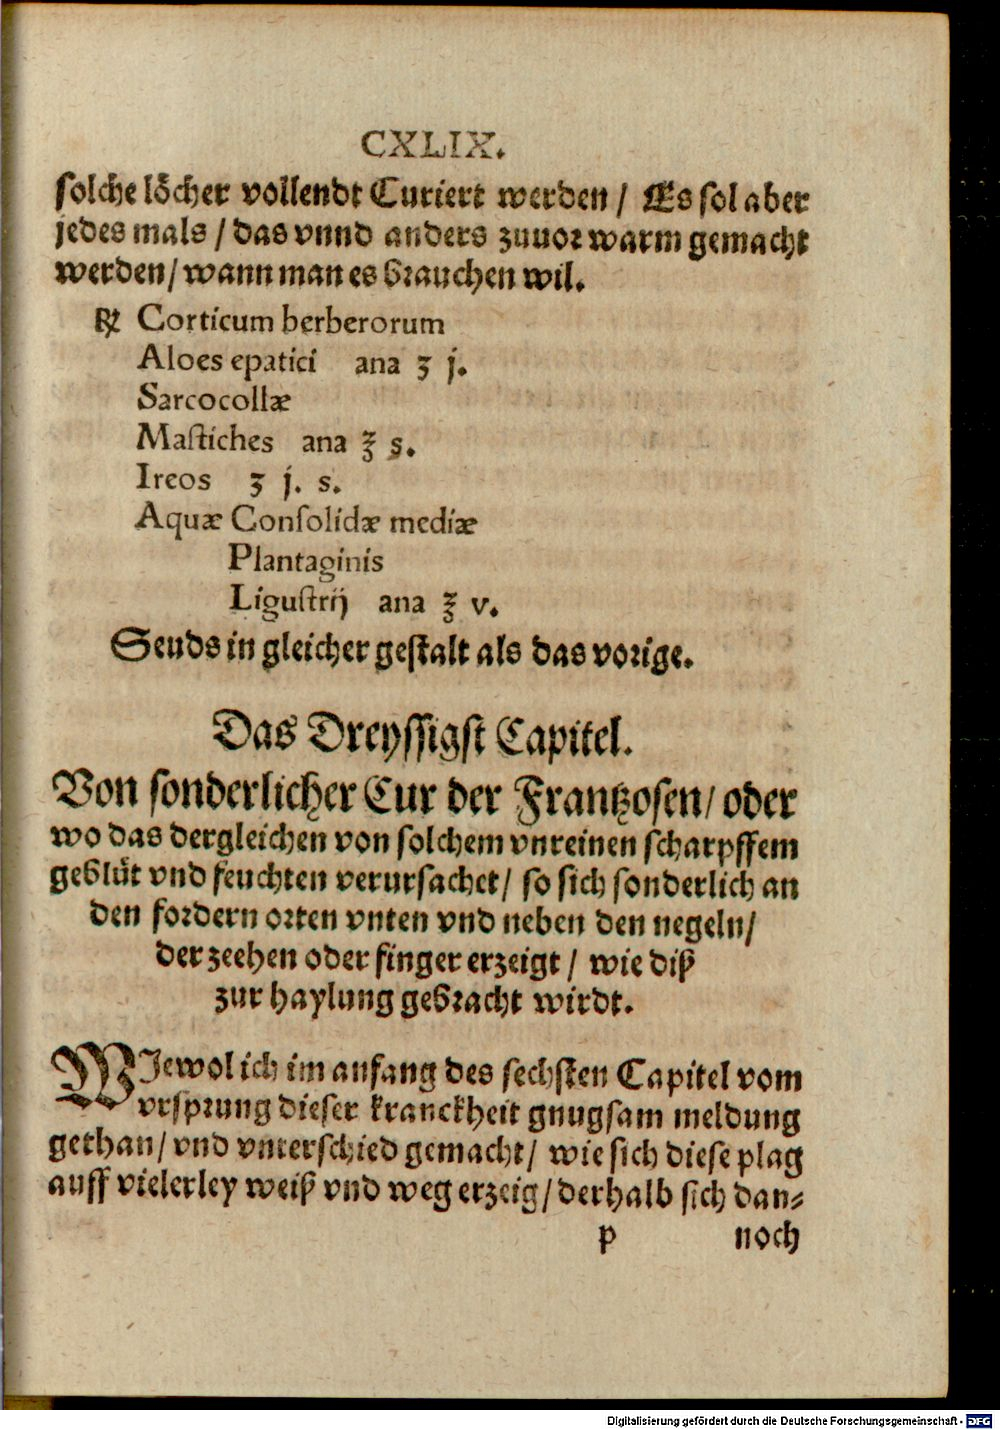 CXLIX.
solche loͤcher vollendt Curiert werden / Es sol aber
jedes mals / das vnnd anders zuuor warm gemacht
werden / wann man es brauchen wil.
℞ Corticum berberorum
Aloes epatici ana ʒ j.
Sarcocollæ
Mastiches ana ℥ s.
Ireos ʒ j. s.
Aquæ Consolidæ mediæ
Plantaginis
Ligustrij ana ℥ v.
Seuds in gleicher gestalt als das vorige.
Das Dreyssigst Capitel.
Von sonderlicher Cur der Frantzosen / oder
wo das dergleichen von solchem vnreinen scharpffem
gebluͤt vnd feuchten verursachet / so sich sonderlich an
den fordern orten vnten vnd neben den negeln /
der zeehen oder finger erzeigt / wie diß
zur haylung gebracht wirdt.
WJewol ich im anfang des sechsten Capitel vom
vrsprung dieser kranckheit gnugsam meldung
gethan / vnd vnterschied gemacht / wie sich diese plag
auff vielerley weiß vnd weg erzeig / derhalb sich dan⸗
p noch
Digitalisierung gefördert durch die Deutsche Forschungsgemeinschaft - DFG